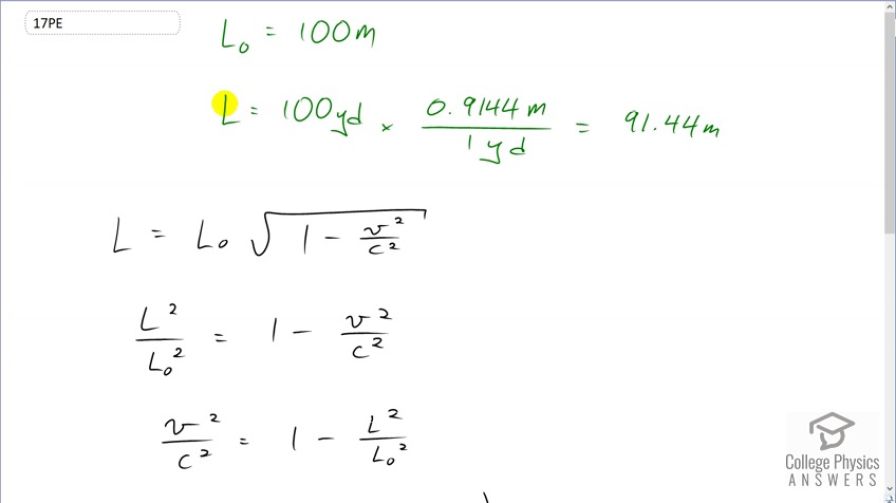 17PE
L₀ = 100m
L = 100yd × 0.9144m / 1yd = 91.44m
L = L₀ √(1 - v²/c²)
L²/L₀² = 1 - v²/c²
v²/c² = 1 - L²/L₀²
College Physics
ANSWERS